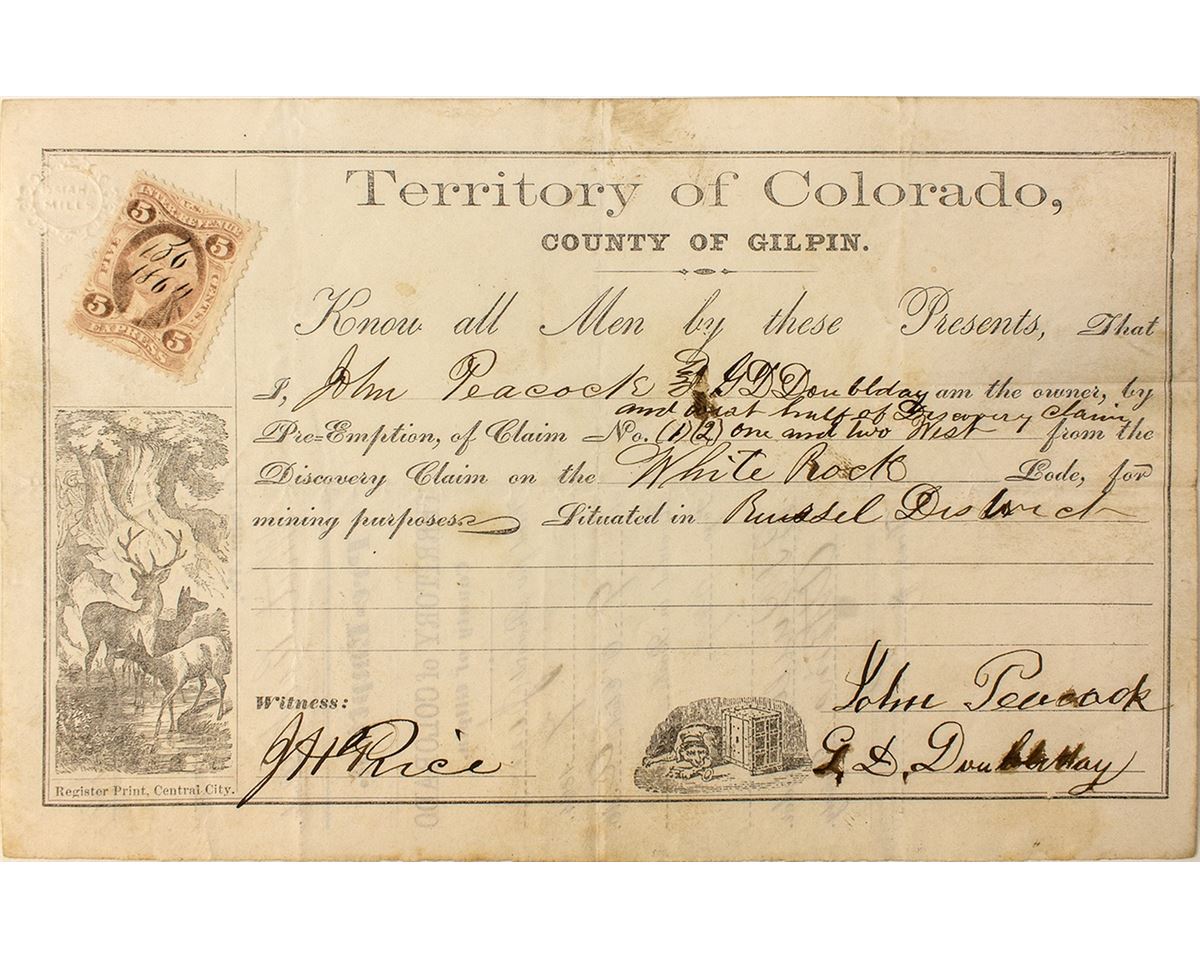 OMAHA
MILLS
U.S. INTER. REVENUE
FIVE CENTS
EXPRESS
5 5
5 5
1864
Territory of Colorado,
COUNTY OF GILPIN.
Know all Men by these Presents, That
I, John Peacock & G D Doubleday am the owner, by
and west half of Discovery claim
Pre=Emption, of Claim No. (1)(2) one and two West from the
Discovery Claim on the White Rock Lode, for
mining purposes Situated in Russel District
John Peacock
Witness:
G. D. Doubleday
Price
Register Print, Central City.